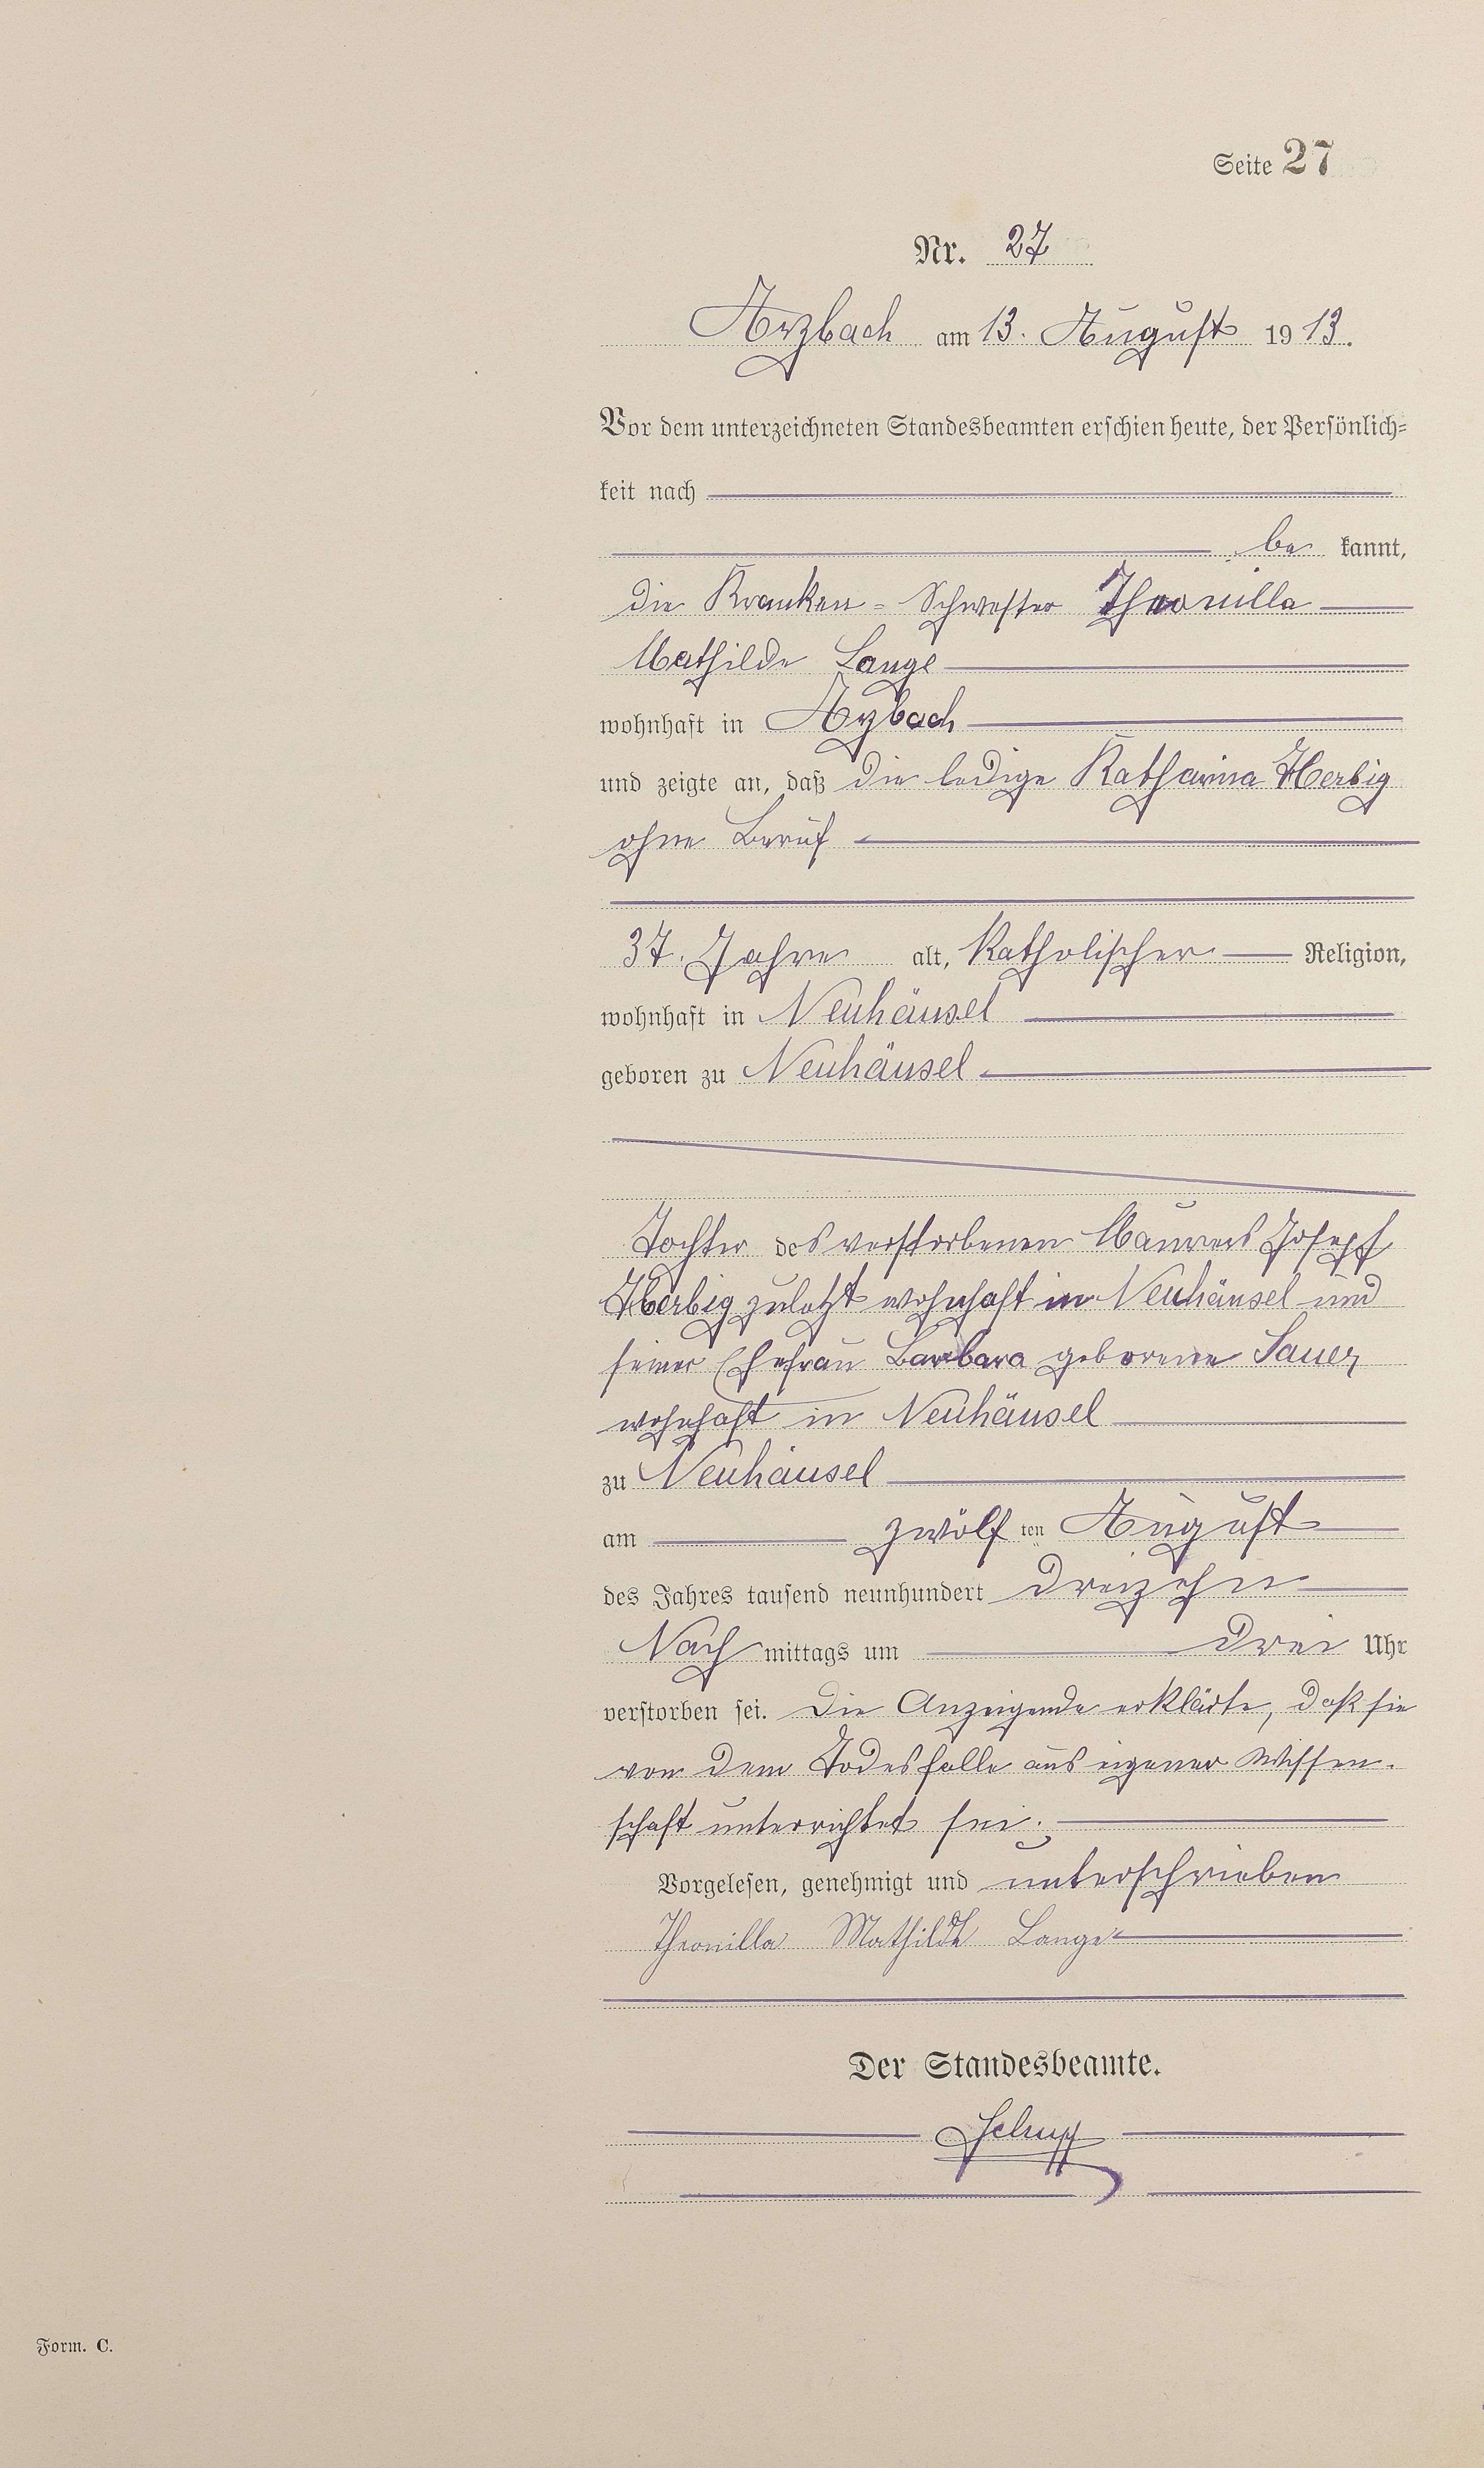 Seite 27
Nr. 27
Arzbach am 13. August 1913.
Vor dem unterzeichneten Standesbeamten erschien heute, der Persönlich=
keit nach
be kannt,
die Kranken = Schwester Theonilla
Mathilde Lange
wohnhaft in Arzbach
und zeigte an, daß die ledige Katharina Herbig
ohne Beruf
37. Jahre alt, Katholischer Religion,
wohnhaft in Neuhäusel
geboren zu Neuhäusel
Tochter des verstorbenen Maurers Joseph
Herbig zuletzt wohnhaft in Neuhäusel und
seiner Ehefrau Barbara geborene Sauer
wohnhaft in Neuhäusel
zu Neuhäusel
am zwölf ten August
des Jahres tausend neunhundert dreizehn
Nach mittags um drei Uhr
verstorben sei. Die Anzeigende erklärte, daß sie
von dem Todesfalle aus eigener Wissen-
schaft unterrichtet sei.
Vorgelesen, genehmigt und unterschrieben
Theonilla Mathilde Lange
Der Standesbeamte.
Form. C.